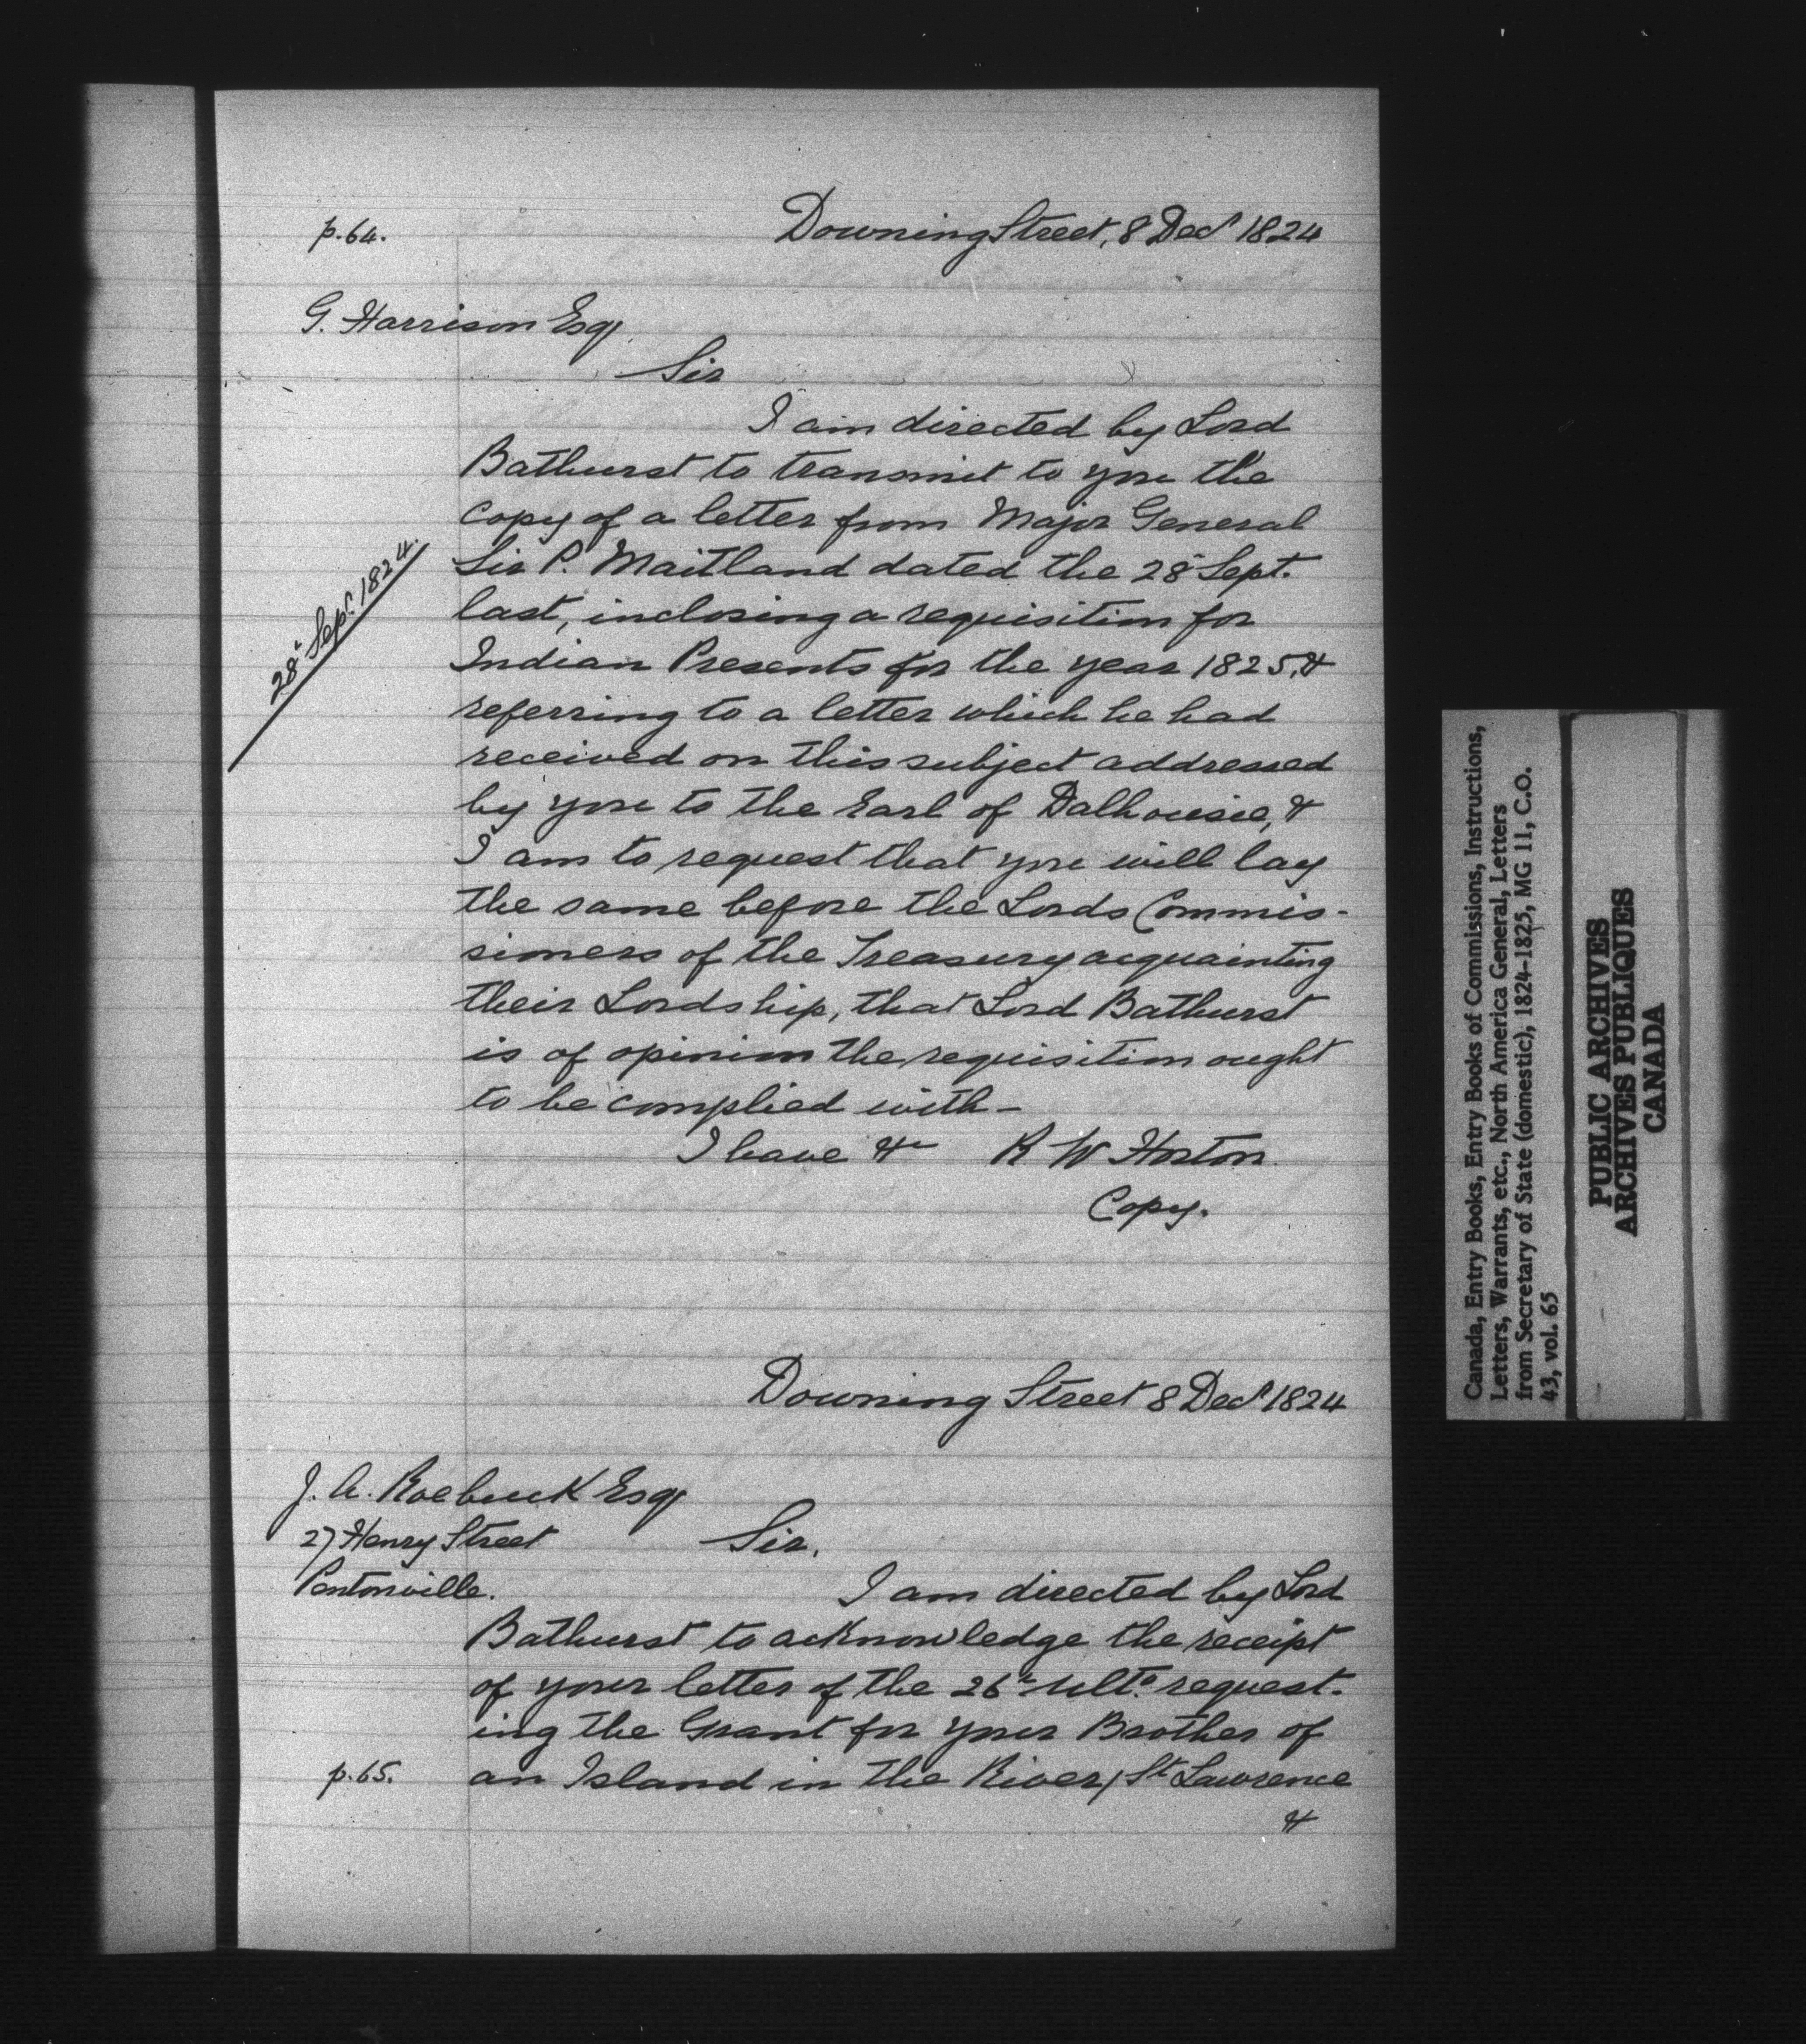 p.64.
Downing Street, 8 Decr 1824
G. Harrison Esqr
Sir
I am directed by Lord
Bathurst to transmit to you the
copy of a letter from Major General
Sir P. Maitland dated the 28 Sept.
last, inclosing a requisition for
Indian Presents for the year 1825, &
referring to a letter which he had
received on this subject addressed
by you to the Earl of Dalhousie, &
I am to request that you will lay
the same before the Lords Commis-
sioners of the Treasury acquainting
their Lordship, that Lord Bathurst
is of opinion the requisition ought
to be complied with-
I have &c R W Horton.
Copy.
28th Sept. 1824.
Downing Street 8 Decr 1824
J. A. Roebuck Esqr
27 Henry Street
Pentonville.
Sir.
I am directed by Lord
Bathurst to acknowledge the receipt
of your letter of the 26th Ulto. request-
ing the Grant for your Brother of
p.65.
an Island in the River / St Lawrence
&
Canada, Entry Books, Entry Books of Commissions, Instructions,
Letters, Warrants, etc., North America General, Letters
from Secretary of State (domestic), 1824-1825, MG 11, C.O.
43, vol. 65
PUBLIC ARCHIVES
ARCHIVES PUBLIQUES
CANADA